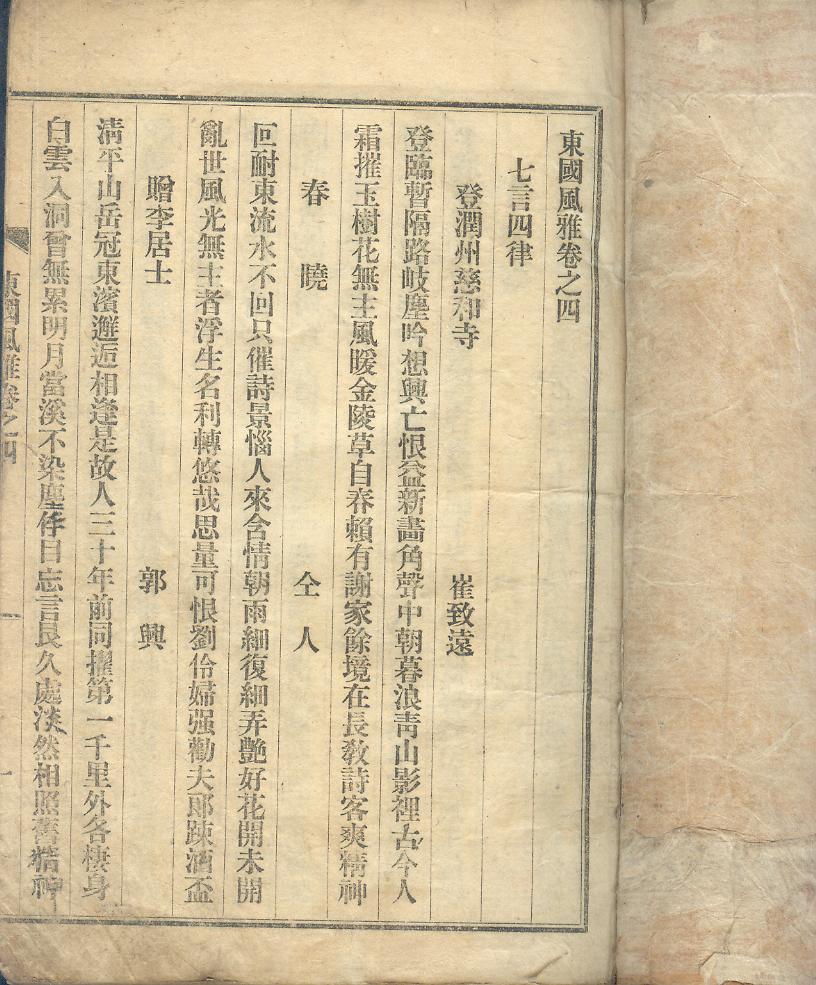 東國風雅卷之四
七言四律
登潤州慈和寺 崔致遠
登臨暫隔路岐塵吟想興亡恨益新畵角聲中朝暮浪靑山影裡古今人
霜摧玉樹花無主風暖金陵草自春賴有謝家餘境在長敎詩客爽精神
春曉 仝人
叵耐東流水不回只催詩景惱人來含情朝雨細復細弄艶好花開未開
亂世風光無主者浮生名利轉悠哉思量可恨劉伶婦强勸夫郞踈酒盃
贈李居士 郭輿
淸平山岳冠東濱邂逅相逢是故人三十年前同擢第一千里外各棲身
白雲入洞曾無累明月當溪不染塵佇目忘言良久處淡然相照舊精神
東國風雅卷之四